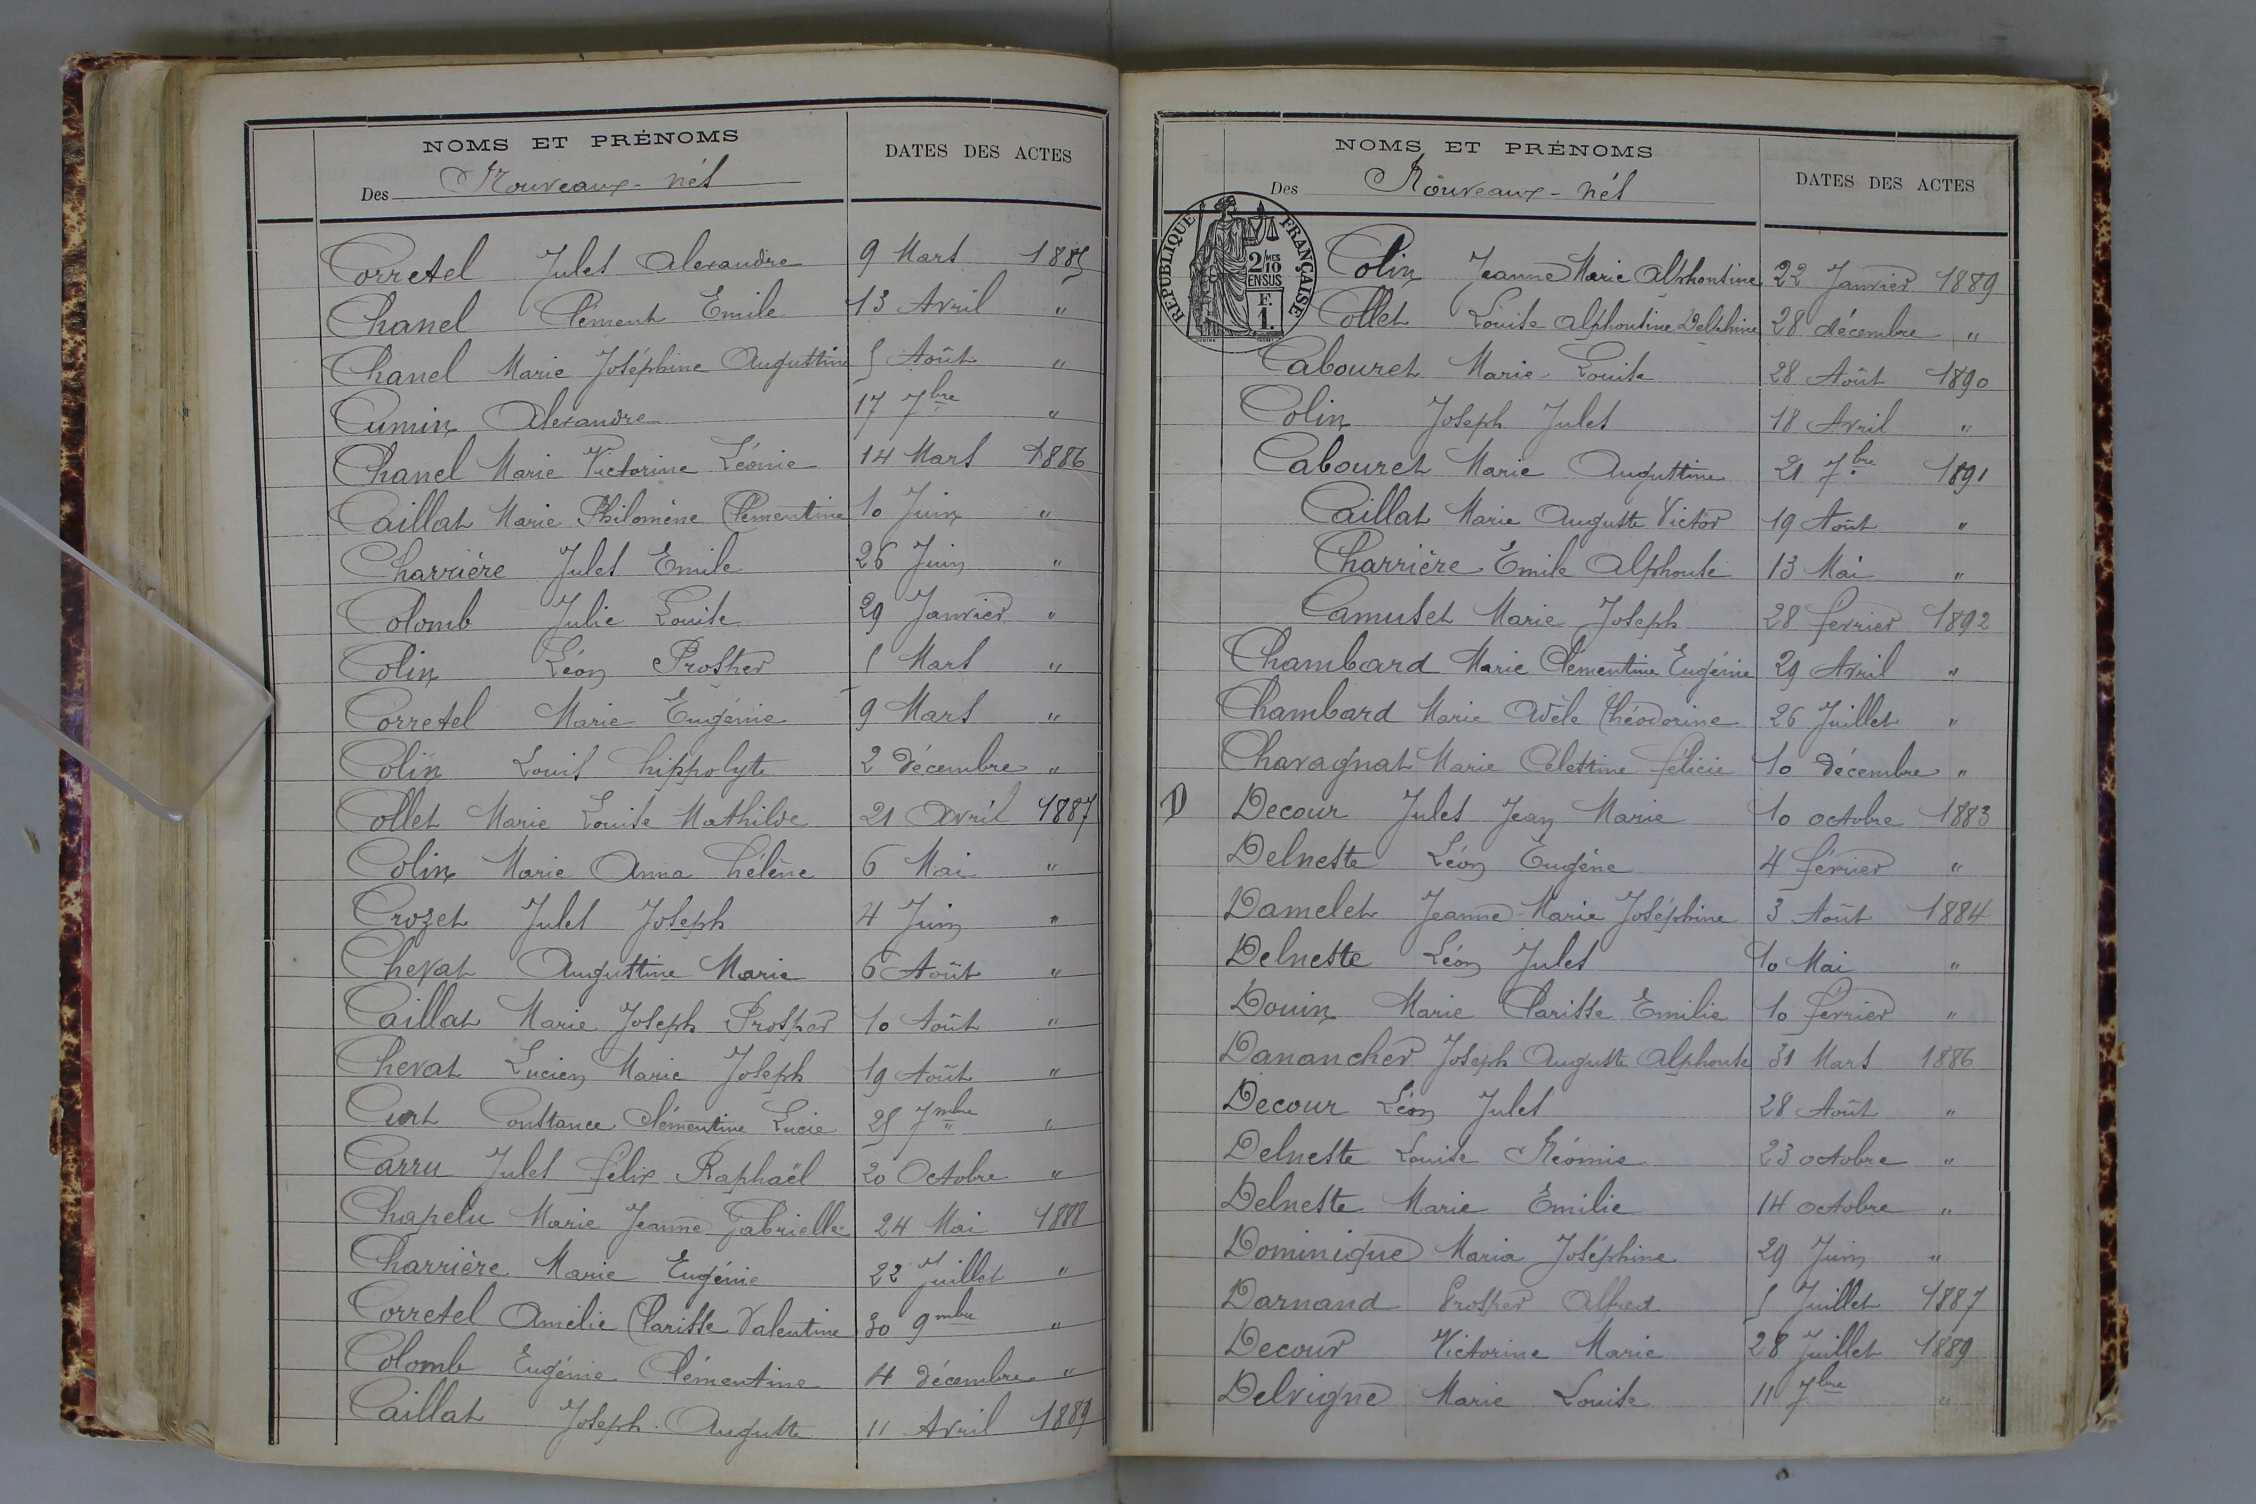 NOMS ET PRÉNOMS
DATES DES ACTES
Des Nouveaux-nés
Corretel Jules Alexandre 9 Mars 1885
Chanel Clément Emile 13 Avril "
Chanel Marie Joséphine Augustine 5 Août "
Cumin Alexandre 17 7bre "
Chanel Marie Victorine Léonie 14 Mars 1886
Caillat Marie Philomène Clémentine 10 Juin "
Charrière Jules Emile 26 Juin "
Colomb Julie Louise 29 Janvier "
Colin Léon Prosper 5 Mars "
Corretel Marie Eugénie 9 Mars "
Colin Louis hippolyte 2 décembre "
Collet Marie Louise Mathilde 21 Avril 1887
Colin Marie Anna hélène 6 Mai "
Crozet Jules Joseph 4 Juin "
Chevat Augustine Marie 6 Août "
Caillat Marie Joseph Prosper 10 Août "
Chevat Lucien Marie Joseph 19 Août "
Curt Constance Clémentine Lucie 25 7mbre "
Carru Jules félix Raphaël 20 Octobre "
Chapelu Marie Jeanne Gabrielle 24 Mai 1888
Charrière Marie Eugénie 22 Juillet "
Corretel Amélie Clarisse Valentine 30 9mbre "
Colomb Eugénie Clémentine 4 décembre "
Caillat Joseph Auguste 11 Avril 1889
NOMS ET PRÉNOMS
DATES DES ACTES
Des Nouveaux-nés
RÉPUBLIQUE FRANÇAISE
2/10MES
EN SUS
F.
1.
Colin Jeanne Marie Alphonsine 22 Janvier 1889
Collet Louise Alphonsine Delphine 28 décembre "
Cabouret Marie Louise 28 Août 1890
Colin Joseph Jules 18 Avril "
Cabouret Marie Augustine 21 7bre 1891
Caillat Marie Auguste Victor 19 Août "
Charrière Emile Alphonse 13 Mai "
Camuset Marie Joseph 28 fevrier 1892
Chambard Marie Clémentine Eugénie 29 Avril "
Chambard Marie Adèle théodorine 26 Juillet "
Chavagnat Marie Celestine félicie 10 décembre "
D Decour Jules Jean Marie 10 octobre 1883
Delneste Léon Eugène 4 février "
Damelet Jeanne Marie Joséphine 3 Août 1884
Delneste Léon Jules 10 Mai "
Douin Marie Clarisse Emilie 10 février "
Danancher Joseph Auguste Alphonse 31 Mars 1886
Decour Léon Jules 28 Août "
Delneste Louise Néomie 23 octobre "
Delneste Marie Emilie 14 octobre "
Dominique Maria Joséphine 29 Juin "
Darnand Prosper Alfred 5 Juillet 1887
Decour Victorine Marie 28 Juillet 1889
Delvigne Marie Louise 11 7bre "